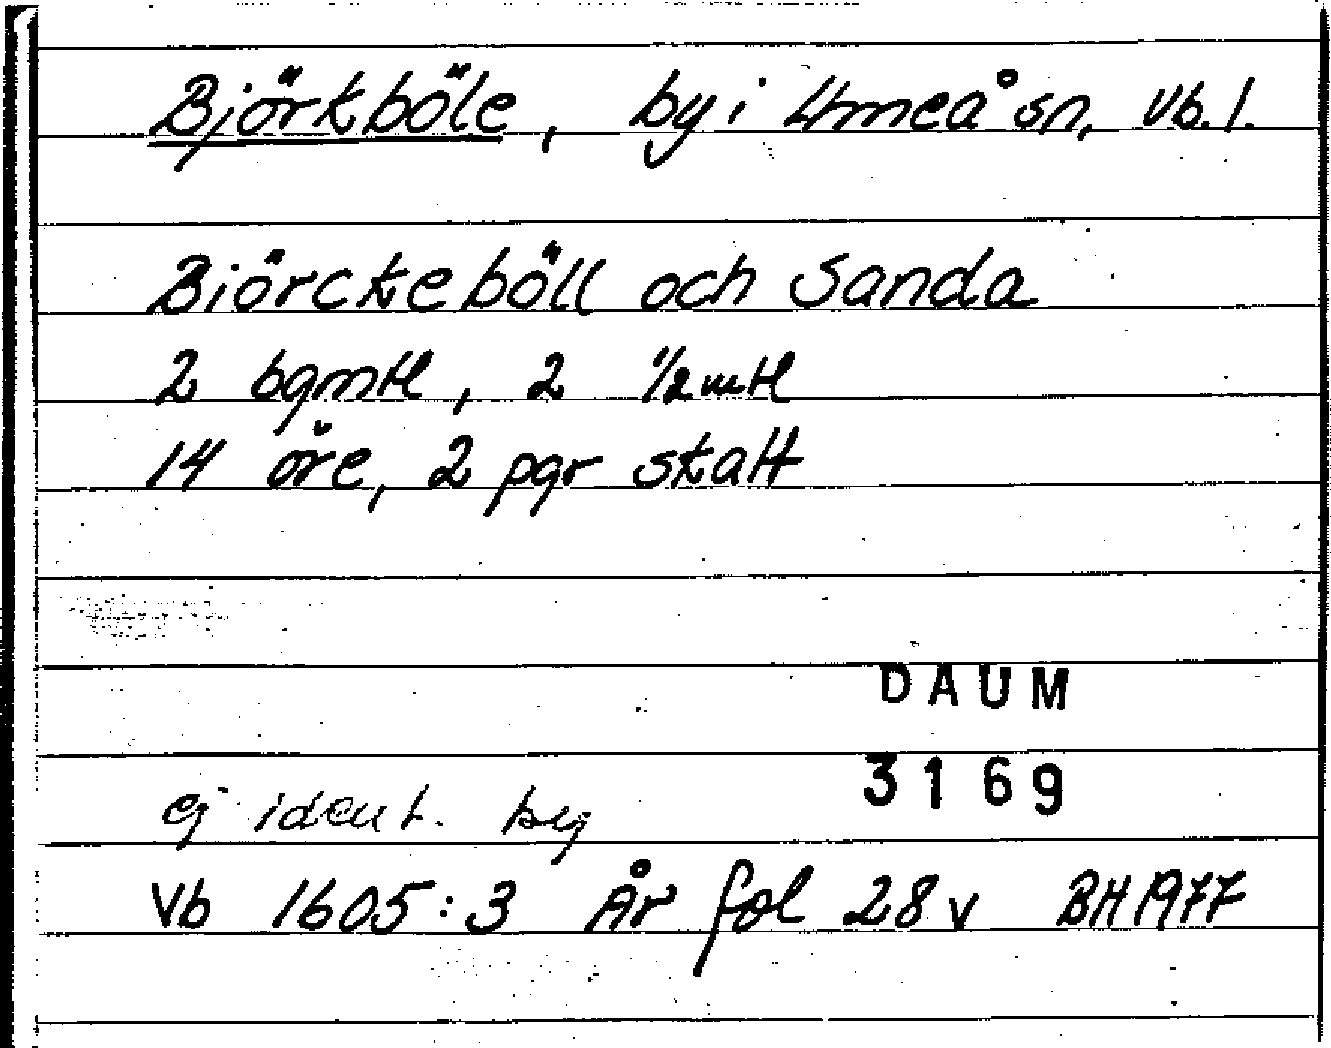 Björkböle, by i Umeå sn, Vb. l.
Biörckeböll och Sanda
2 bgmtl, 2 1/2 mtl
14 öre, 2 pgr skatt
DAUM
3169
ej ident. by
Vb 1605:3 Är fol 28 v BH 1977